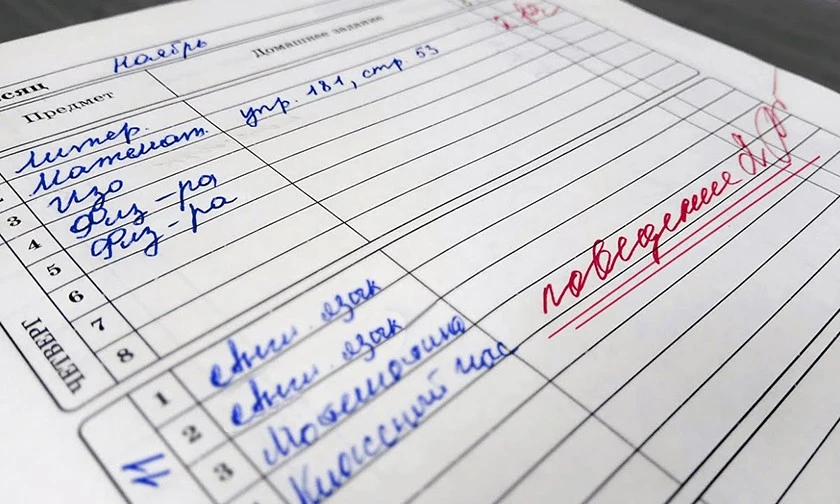 есяц ноябрь
Предмет Домашнее задание
литер.
2 Математ. упр. 181, стр 53
3 Изо
4 Физ-ра
5 Физ-ра
6
7
8
ЧЕТВЕРГ
поведение
1 Англ. язык
2 Англ. язык
3 Математика
Классный час
11